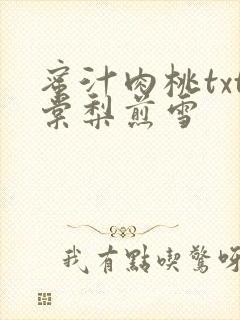 蜜汁肉桃txt
棠梨煎雪
我有點喫驚呀